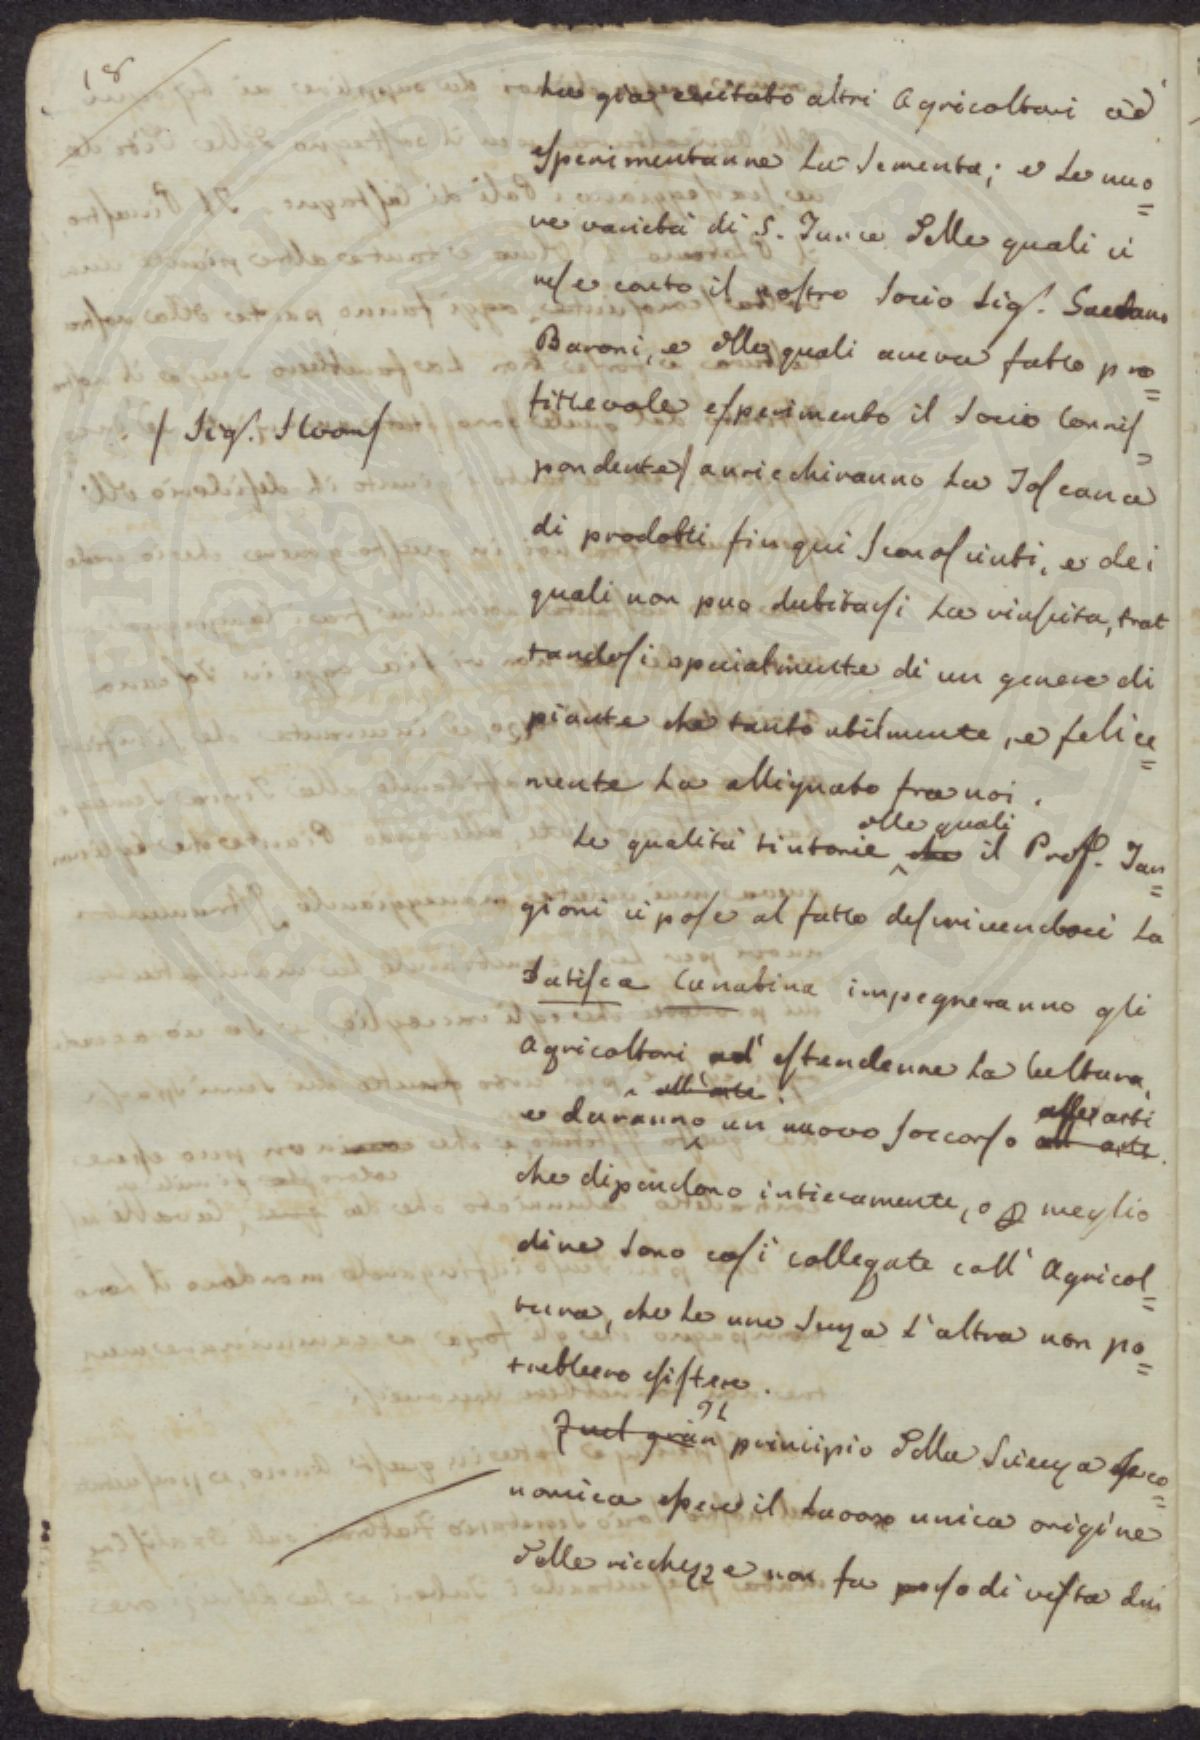 18
ha già eccitato altri Agricoltori ad
esperimentarne la sementa; e le nuo=
ve varietà di S. Lucia delle quali ci
rese conto il nostro Socio Sig. Gaetano
Baroni, e delle quali aveva fatto pro=
fittevole esperimento il Socio Corris=
/ Sig. Stroms/
pondente/ arricchiranno la Toscana
di prodotti fin qui sconosciuti, e dei
quali non puo dubitarsi la riuscita, trat
tandosi specialmente di un genere di
piante che tanto utilmente, e felice=
mente ha allignato fra noi.
delle quali
Le qualità tintorie che il Prof. Tar=
gioni ci pose al fatto descrivendoci la
Datisca Canabina impegneranno gli
Agricoltori ad estenderne la Cultura,
all'arte
e daranno un nuovo soccorso all'arte
alle arti
che dipendono intieramente, o p meglio
dire sono così collegate coll'Agricol=
tura, che le une senza l'altra non po=
trebbero esistere.
Il
Quel gran principio della Scienza eco=
nomica essere il lavoro unica origine
delle ricchezze non fu perso di vista dai